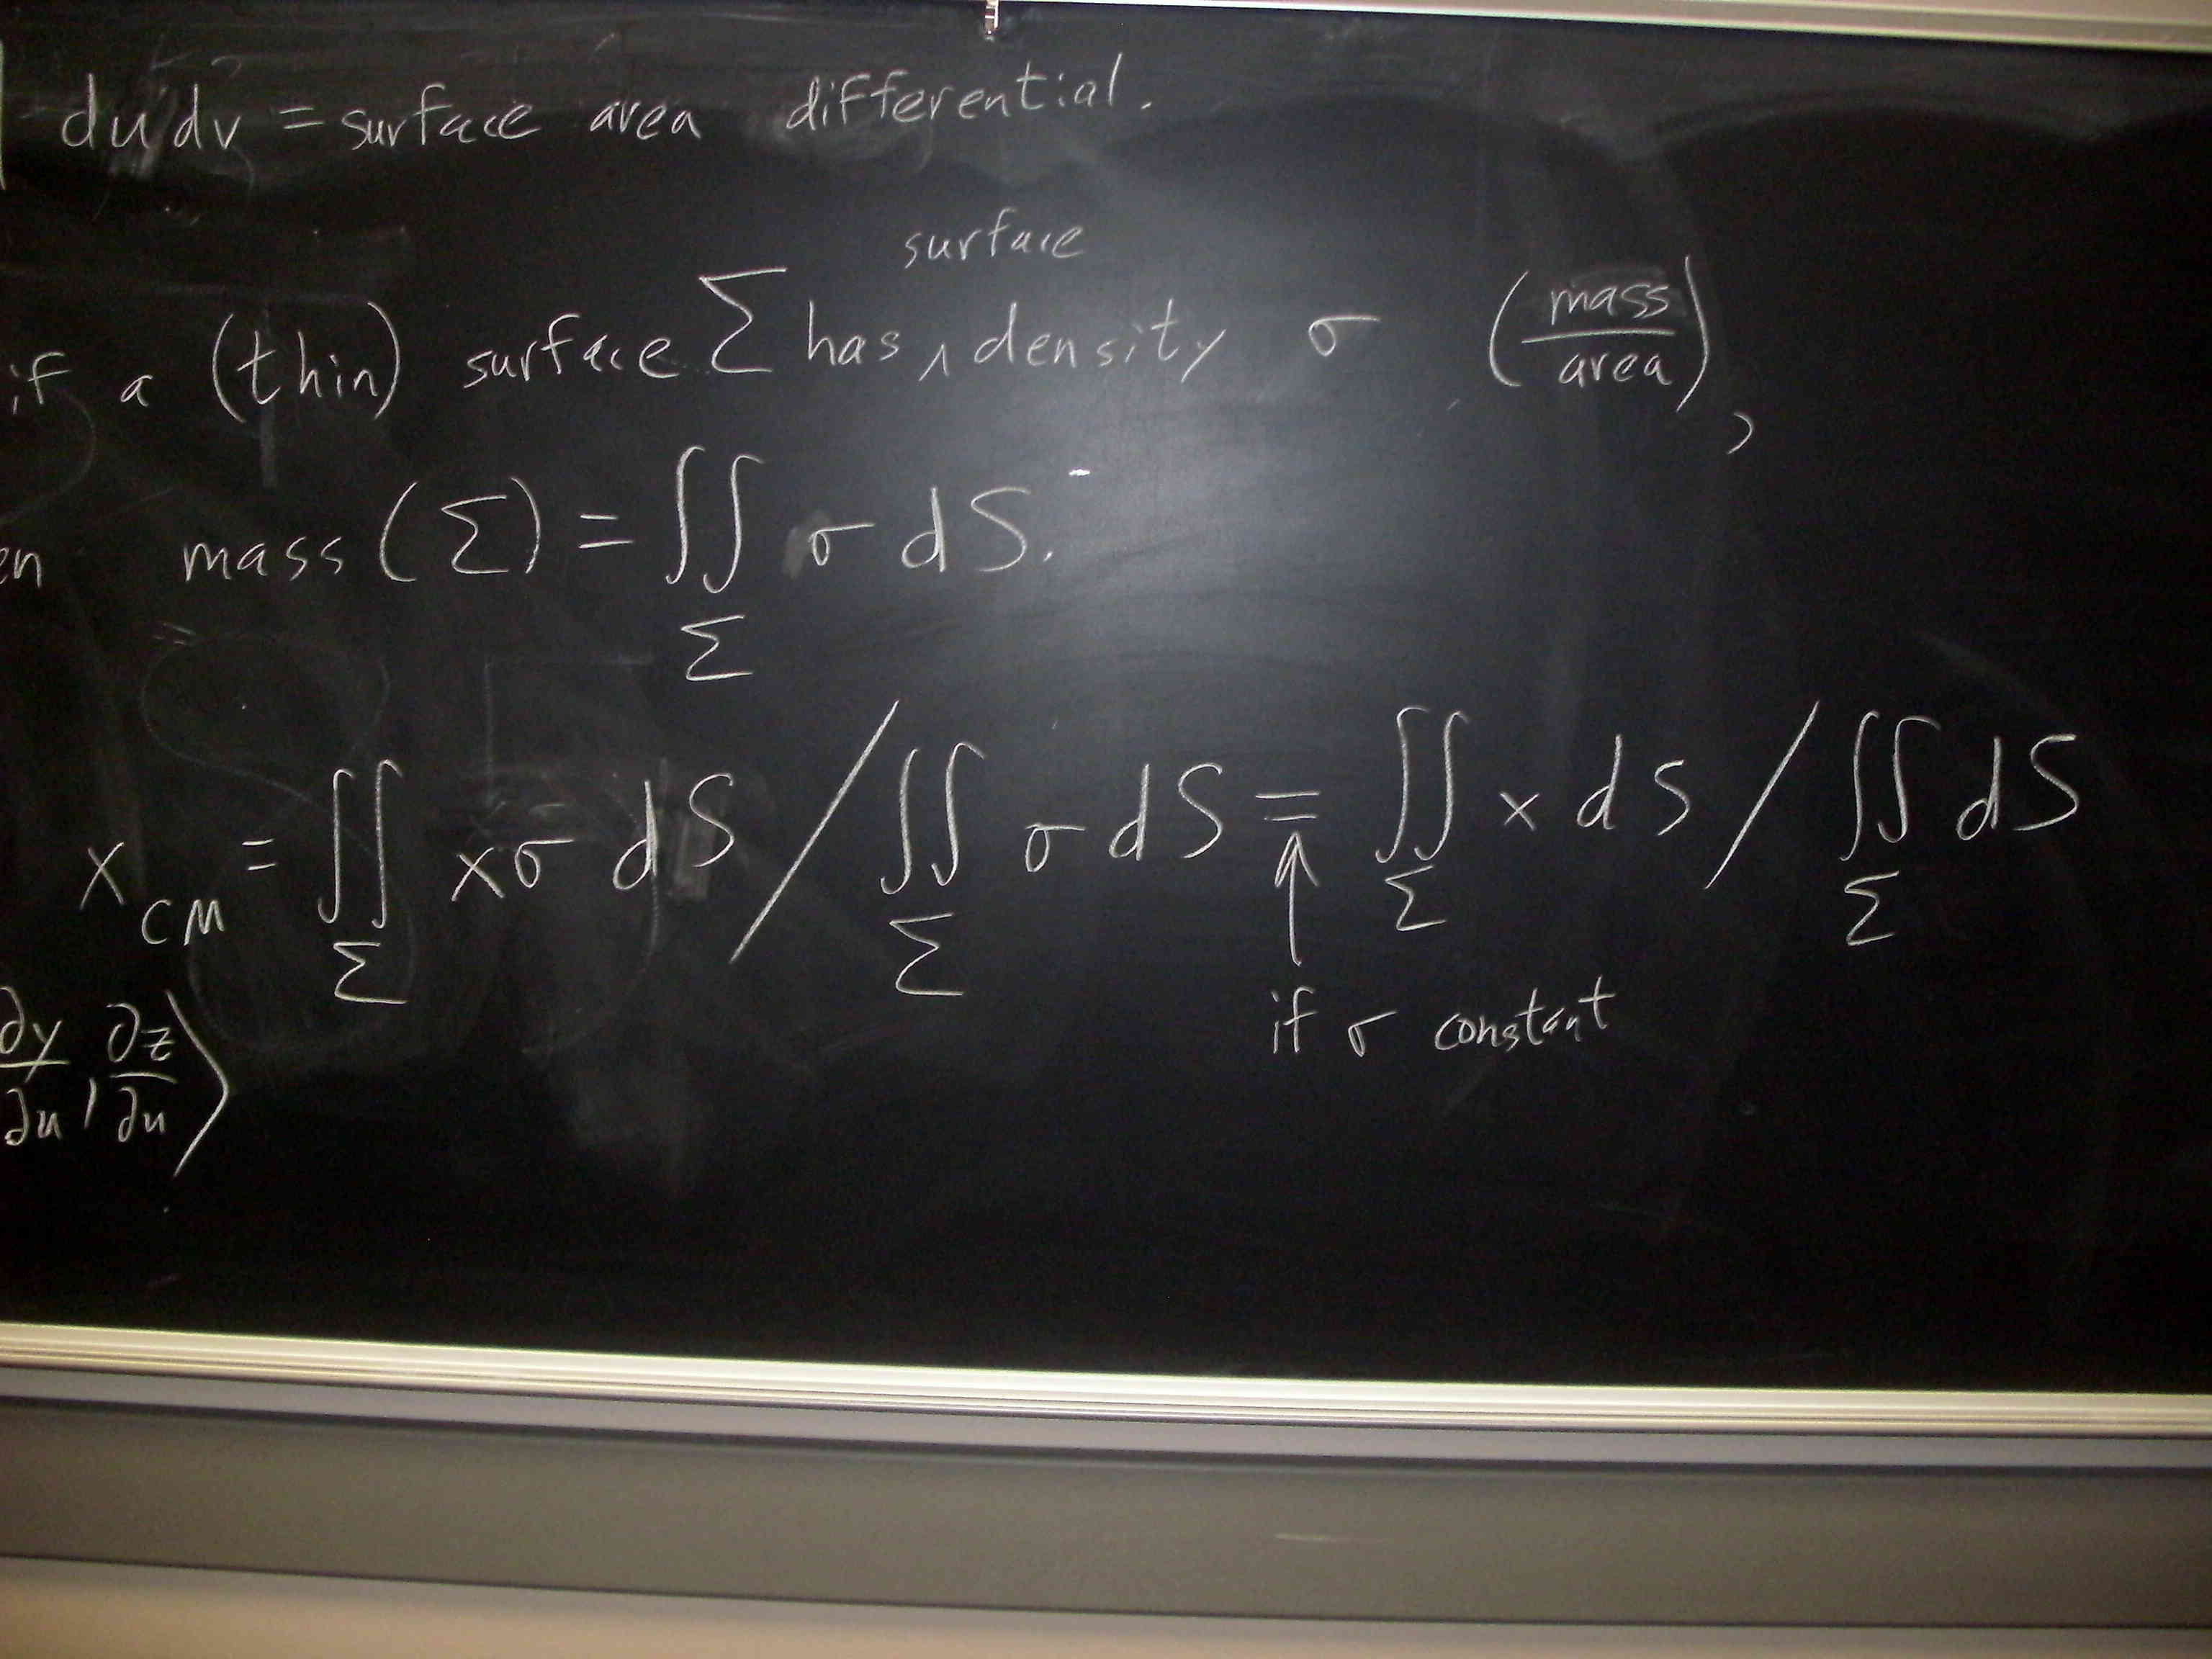 | du dv = surface area differential.
surface
if a (thin) surface Σ has ∧ density σ (mass/area),
en mass(Σ) = ∬_Σ σ dS.
x_CM = ∬_Σ xσ dS / ∬_Σ σ dS = ∬_Σ x dS / ∬_Σ dS
↑
if σ constant
∂y/∂u, ∂z/∂u⟩